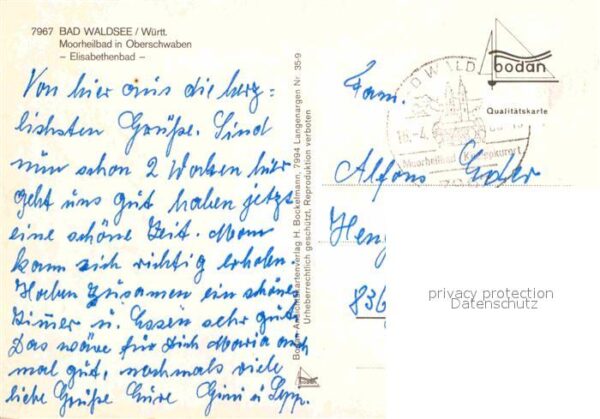 7967 BAD WALDSEE / Württ.
Moorheilbad in Oberschwaben
– Elisabethenbad –
Von hier aus die herz=
lichsten Grüße. Sind
nun schon 2 Wochen hier
geht uns gut haben jetzt
eine schöne Zeit. Man
kann sich richtig erholen.
Haben zusamen ein schönes
Zimer u. Essen sehr gut.
Das wäre für Dich Maria auch
mal gut, nochmals viele
liebe Grüße Eure Gini u Sepp.
Bodan Ansichtskartenverlag H. Bockelmann, 7994 Langenargen Nr. 35-9
Urheberrechtlich geschützt. Reproduktion verboten
bodan
bodan
Qualitätskarte
BAD WALD
18.-4.
Moorheilbad Kneippkurort
Fam.
Alfons
Heng
836
privacy protection
Datenschutz